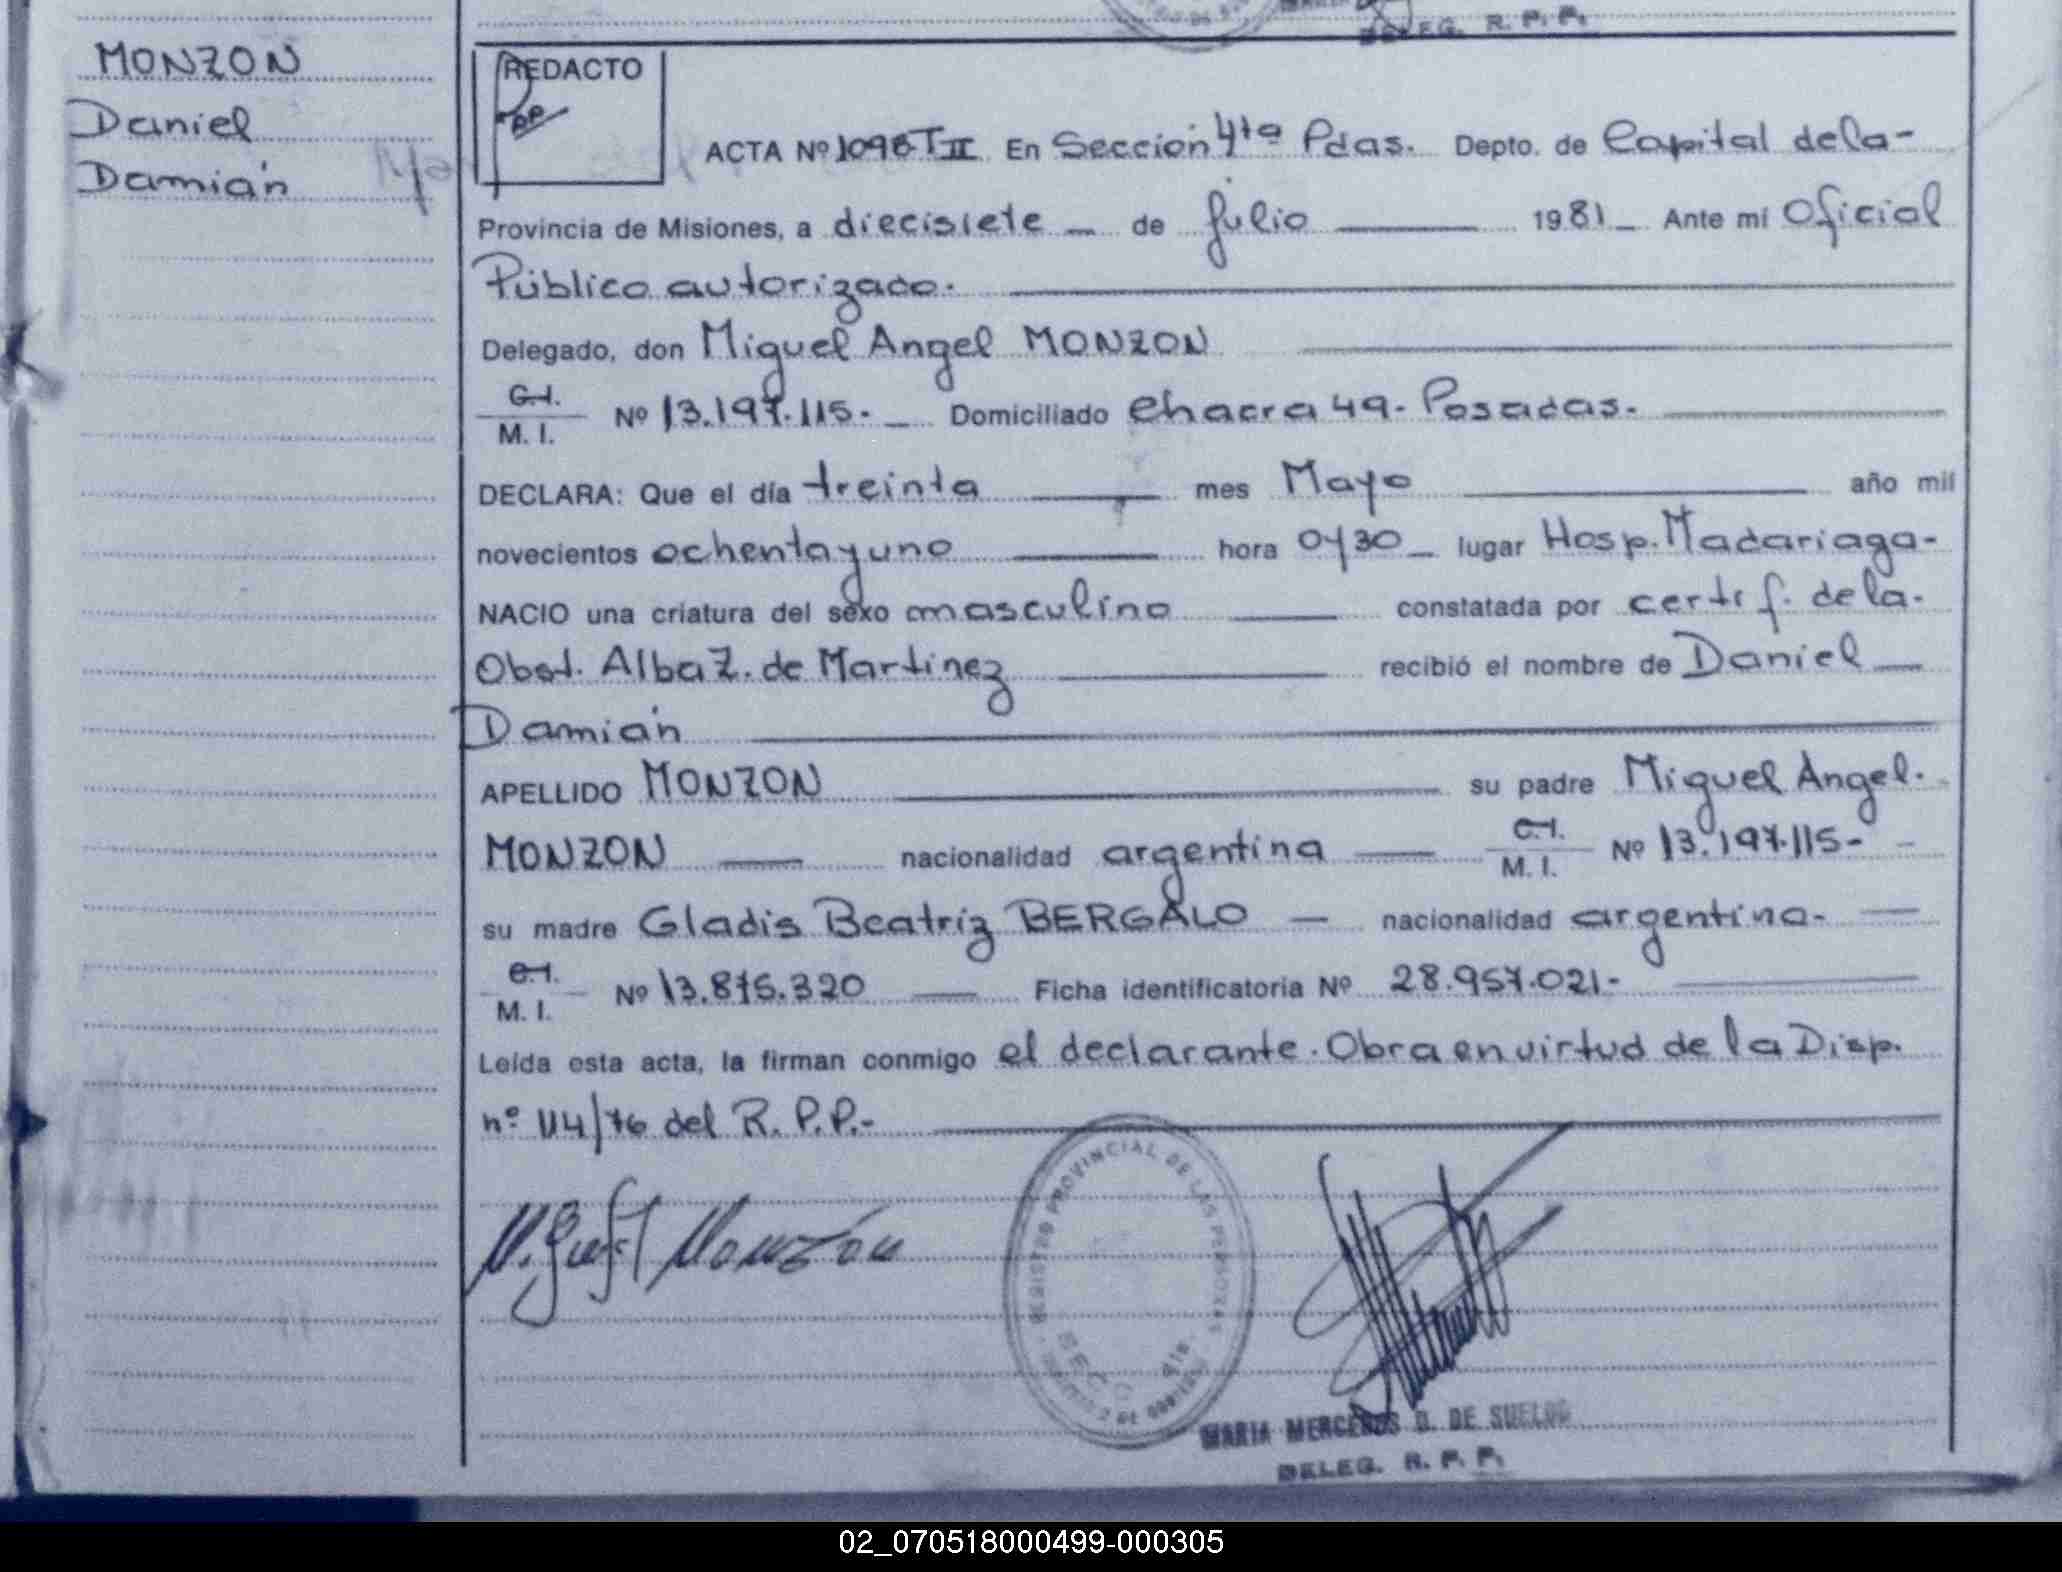 DELEG. R. P. P.
MONZON
Daniel
Damián
REDACTO
ACTA Nº 1096 T II En Sección 4ta Pdas. Depto. de Capital de la-
Provincia de Misiones, a diecisiete de julio 1981 Ante mí Oficial
Público autorizado.
Delegado, don Miguel Angel MONZON
C.I.
M. I. Nº 13.197.115.- Domiciliado Chacra 49- Posadas.
DECLARA: Que el día treinta mes Mayo año mil
novecientos ochenta y uno hora 0y30 lugar Hosp. Madariaga-
NACIO una criatura del sexo masculino constatada por certif. de la.
Obst. Alba Z. de Martinez recibió el nombre de Daniel
Damián
APELLIDO MONZON su padre Miguel Angel.
MONZON nacionalidad argentina C.I. M. I. Nº 13.197.115-
su madre Gladis Beatriz BERGALO nacionalidad argentina-
C.I.
M. I. Nº 13.875.320 Ficha identificatoria Nº 28.957.021-
Leída esta acta, la firman conmigo el declarante. Obra en virtud de la Disp.
nº 114/76 del R. P. P.-
REGISTRO PROVINCIAL DE LAS PERSONAS
SECC 4ta.
Monzón
MARIA MERCEDES D. DE SUELDO
DELEG. R. P. P.
02_070518000499-000305